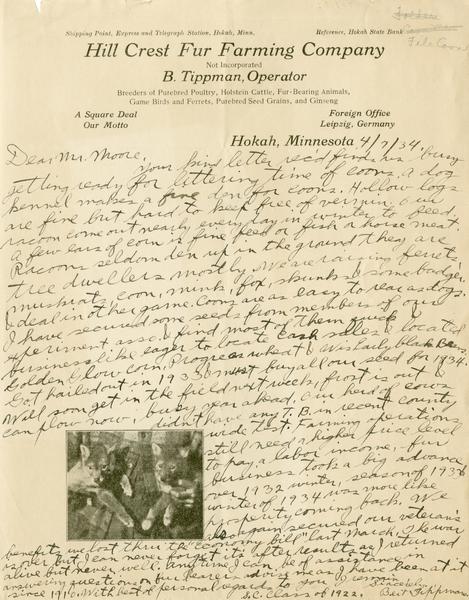 Shipping Point, Express and Telegraph Station, Hokah, Minn.
Reference, Hokah State Bank
Hill Crest Fur Farming Company
Not Incorporated
B. Tippman, Operator
Breeders of Purebred Poultry, Holstein Cattle, Fur-Bearing Animals,
Game Birds and Ferrets, Purebred Seed Grains, and Ginseng
A Square Deal
Our Motto
Foreign Office
Leipzig, Germany
Hokah, Minnesota 4/7/34
Dear Mr. Moore,
Your kind letter rec'd finds us busy
getting ready for littering time of coons, a dog
kennel makes a fine pen for coons. Hollow logs
are fine but hard to keep free of vermin, our
racoon come out nearly every day in winter to feed,
a few ears of corn is fine feed or fish or horse meat.
Racoons seldom den up in the ground they are
tree dwellers mostly. We are raising ferrets,
muskrats, coon, mink, fox, skunks & some badger,
& deal in other game. Coons are as easy to rear as dogs.
I have secured some seeds from members of our
experiment asso. & find most of them
business like eager to locate cash sales. I located
Golden Glow corn, Progress wheat & Wis early black Beans
Got hailed out in 1933 & must buy all our seed for 1934.
Will soon get in the field next week, frost is out &
can plow now, busy year ahead. Our herd of cows
didn't have any T.B. in recent county
wide test. Farming operations
still need a higher price level
to pay a labor income,- fur
business took a big advance
over 1932 winter, season of 1933
winter of 1934 was more like
prosperity coming back. We
again secured our veteran's
benefits we lost thru the "economy bill" last March. The war
is over but I can never forget its after results as I returned
alive but never well. Any time I can be of assistance in
answering questions on fur bearers advise me, I have been at it
since 1916. With best of personal regards to you I remain
Sincerely
S.C. class of 1922.
Bert Tippman